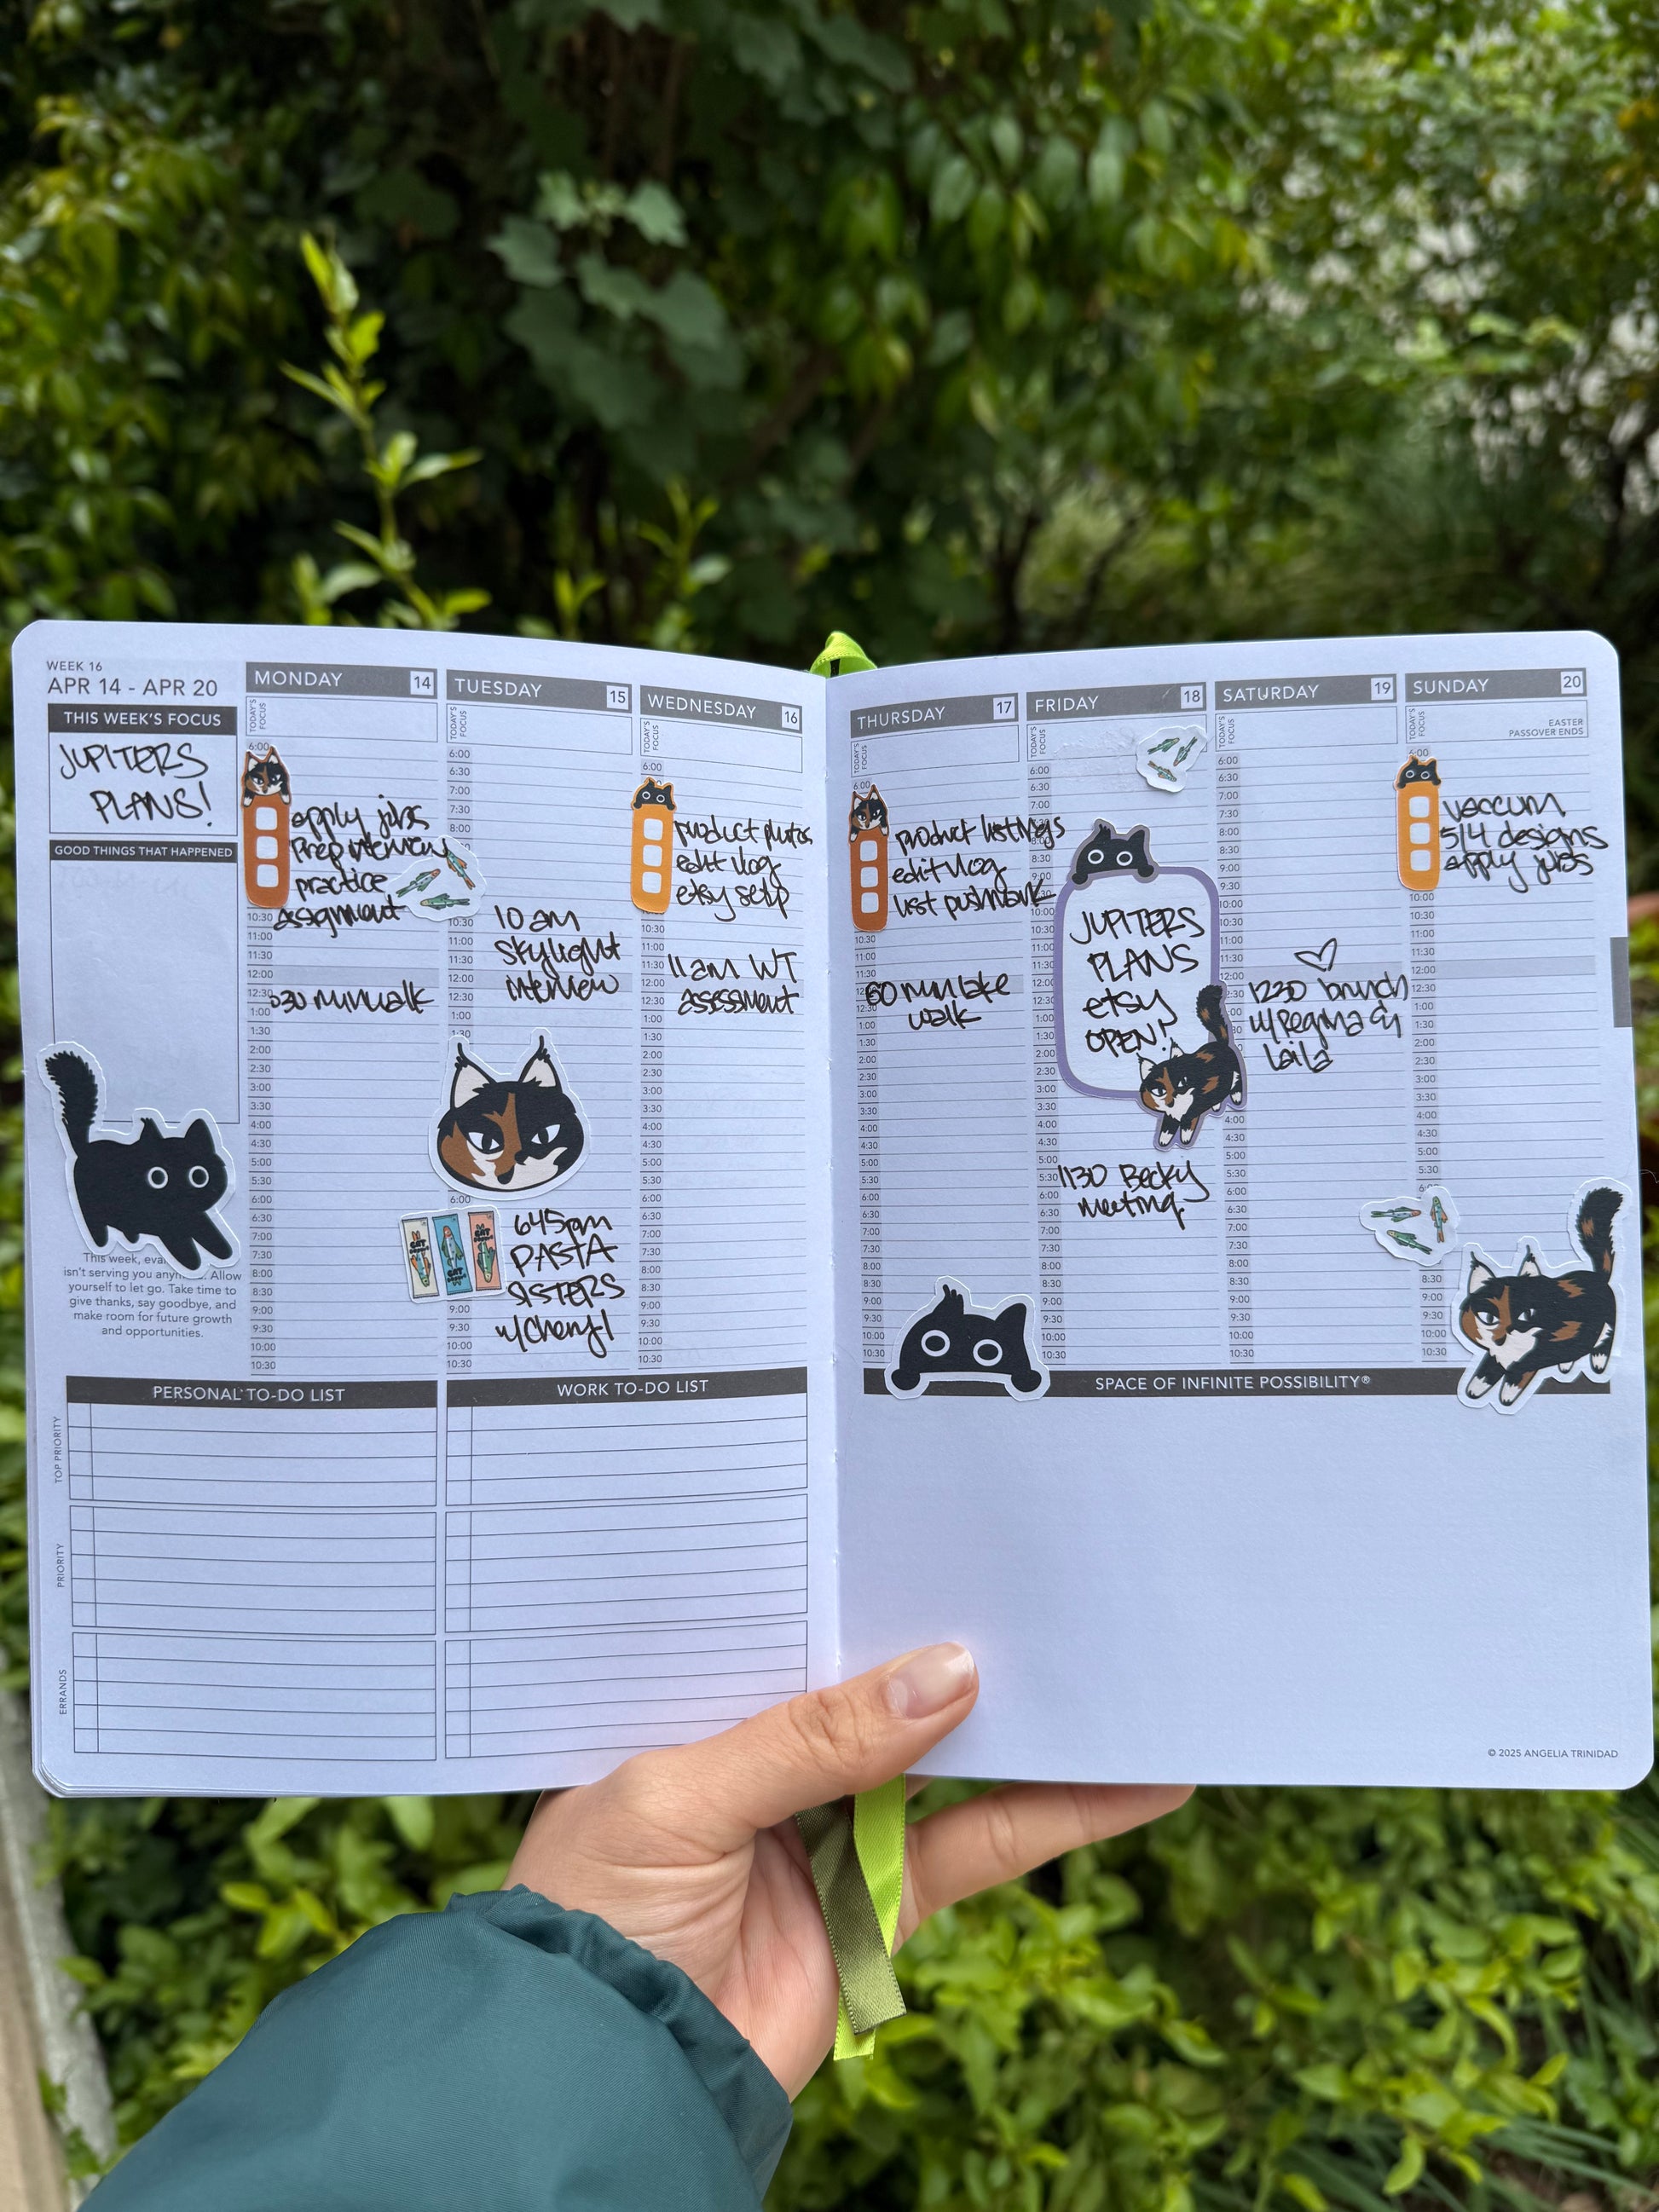 WEEK 16
APR 14 - APR 20
THIS WEEK'S FOCUS
JUPITERS
PLANS!
GOOD THINGS THAT HAPPENED
This week, eva
isn't serving you any Allow
yourself to let go. Take time to
give thanks, say goodbye, and
make room for future growth
and opportunities.
MONDAY 14
TODAY'S FOCUS
6:00
apply jobs
Prep interview
practice
assignment
10:30
11:00
11:30
12:00
12:30
30 min walk
1:00
1:30
2:00
2:30
3:00
3:30
4:00
4:30
5:00
5:30
6:00
6:30
7:00
7:30
8:00
8:30
9:00
9:30
10:00
10:30
TUESDAY 15
TODAY'S FOCUS
6:00
6:30
7:00
7:30
8:00
10:30
11:00
11:30
12:00
12:30
1:00
1:30
10 am
skylight
interview
6:00
645pm
PASTA
SISTERS
w/Cheryl
CAT
CAT
CAT
9:00
9:30
10:00
10:30
WEDNESDAY 16
TODAY'S FOCUS
6:00
product photos
edit vlog
etsy setup
10:30
11:00
11:30
12:00
12:30
11am WT
assessment
1:00
1:30
2:00
2:30
3:00
3:30
4:00
4:30
5:00
5:30
6:00
6:30
7:00
7:30
8:00
8:30
9:00
9:30
10:00
10:30
THURSDAY 17
TODAY'S FOCUS
6:00
product listings
edit vlog
list poshmark
10:30
11:00
11:30
12:00
12:30
60 min lake
walk
1:00
1:30
2:00
2:30
3:00
3:30
4:00
4:30
5:00
5:30
6:00
6:30
7:00
7:30
8:00
8:30
9:00
9:30
10:00
10:30
FRIDAY 18
TODAY'S FOCUS
6:00
6:30
7:00
7:30
8:00
8:30
9:00
9:30
10:00
10:30
11:00
11:30
12:00
12:30
1:00
1:30
2:00
2:30
3:00
3:30
4:00
4:30
5:00
5:30
6:00
6:30
7:00
7:30
8:00
8:30
9:00
9:30
10:00
10:30
JUPITERS
PLANS
etsy
OPEN!
1130 Becky
meeting
SATURDAY 19
TODAY'S FOCUS
6:00
6:30
7:00
7:30
8:00
8:30
9:00
9:30
10:00
10:30
11:00
11:30
12:00
1230 brunch
w/Regina &
Laila
4:00
4:30
5:00
5:30
6:00
6:30
7:00
7:30
8:00
8:30
9:00
9:30
10:00
10:30
SUNDAY 20
TODAY'S FOCUS
EASTER
PASSOVER ENDS
6:00
vaccum
5/4 designs
apply jobs
10:00
10:30
11:00
11:30
12:00
12:30
1:00
1:30
2:00
2:30
3:00
3:30
4:00
4:30
5:00
5:30
8:30
9:00
9:30
10:00
10:30
PERSONAL TO-DO LIST
WORK TO-DO LIST
TOP PRIORITY
PRIORITY
ERRANDS
SPACE OF INFINITE POSSIBILITY®
© 2025 ANGELIA TRINIDAD